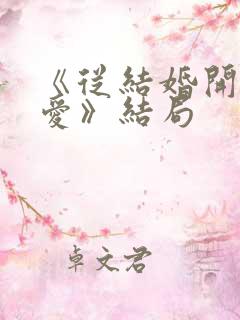 《從結婚開
愛》結局
卓文君